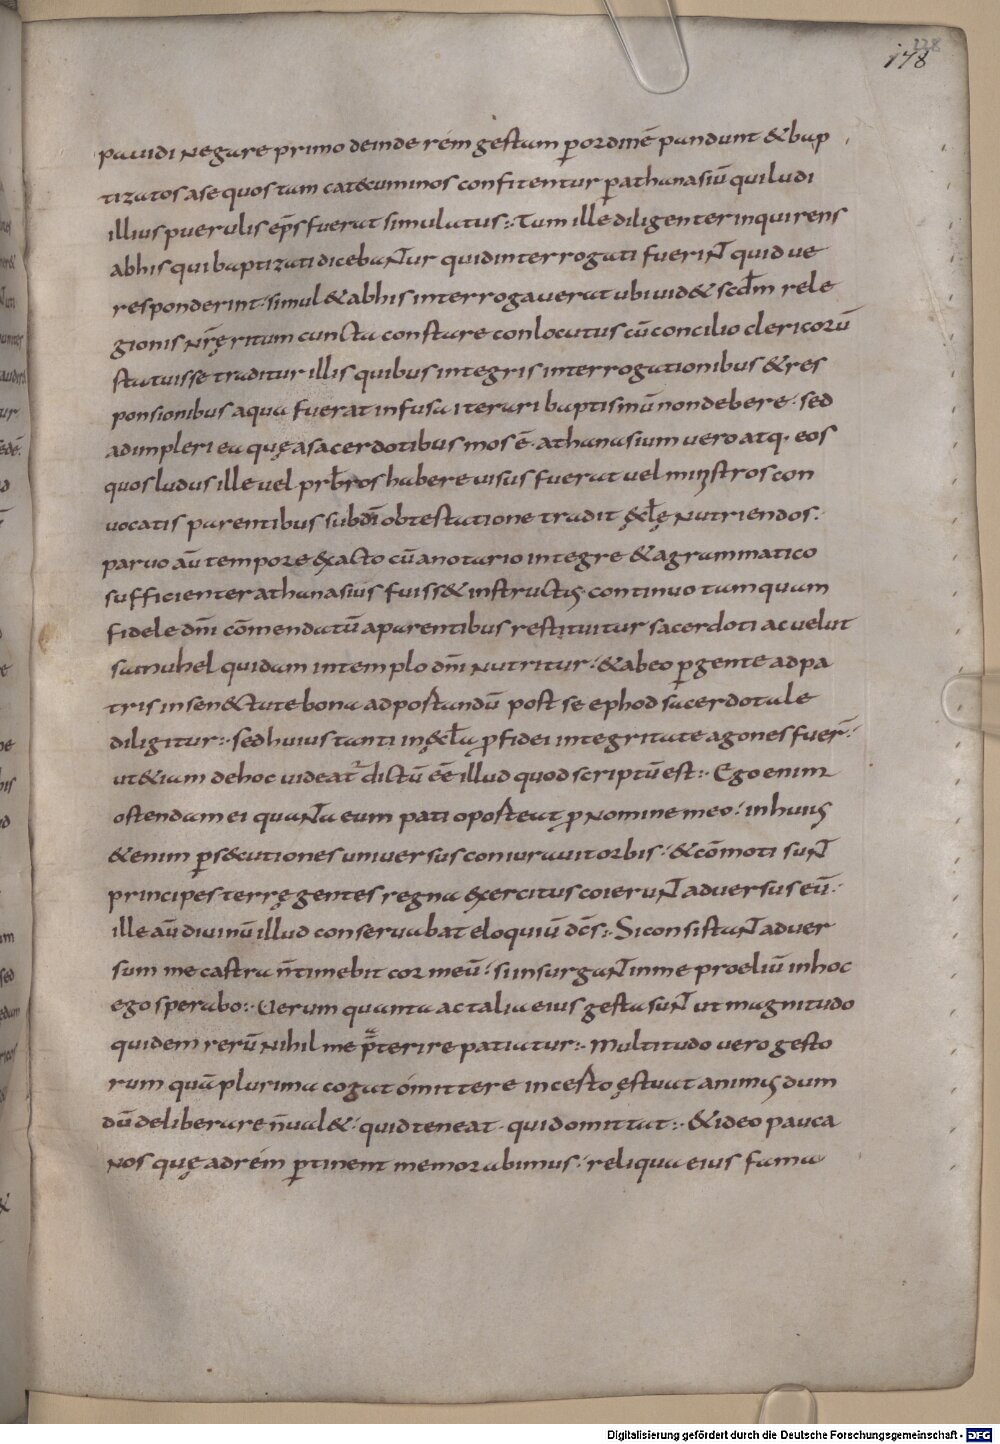 178
228
pauidi negare primo deinde rem gestam p̱ordinē pandunt & bap
tizatos a se quos tam cat&cuminos confitentur p̱athanasiū qui ludi
illius puerulis ep̄s fuerat simulatus:· Tum ille diligenter inquirens
ab his qui baptizati dicebantur quid interrogati fuerint quid ue
responderint· simul & ab his interrogauerat ubi uid& scd̄m rele
gionis nr̄ę ritum cuncta constare conlocutus cū concilio clericorū
statuisse traditur illis quibus integris interrogationibus & res
ponsionibus aqua fuerat infusa iterari baptismū non debere· sed
adimpleri ea quę a sacerdotibus mos ē· athanasium uero atq· eos
quos ludus ille uel prb̄ros habere uisus fuerat uel ministros con
uocatis parentibus sub dī obtestatione tradit ęcl̄ę nutriendos:·
paruo aū tempore exacto cū a notario integre & a grammatico
sufficienter athanasius fuiss& instructus· continuo tamquam
fidele dn̄i cōmendatū a parentibus restituitur sacerdoti ac uelut
samuhel quidam in templo dn̄i nutritur· & ab eo p̱gente ad pa
tris in sen&ctute bona ad postandū post se ephod sacerdotale
diligitur:· sed huius tanti in ęcl̄a p̱ fidei integritate agones fuer̄·
ut &iam de hoc uideat̄ dictū ēē illud quod scriptū est:· Ego enim
ostendam ei quanta eum pati oposteat p̱ nomine meo· in huius
&enim p̱s&cutiones uniuersus coniurauit orbis· & cōmoti sunt
principes terrę gentes regna exercitus coierunt aduersus eū·
ille aū diuinū illud conseruabat eloquiū dc̄s:· Si consistant aduer
sum me castra n̄ timebit cor meū· si insurgant in me proeliū in hoc
ego sperabo:· Uerum quanta ac talia eius gesta sunt ut magnitudo
quidem rerū nihil me p̄terire patiatur:· Multitudo uero gesto
rum quā plurima cogat omittere incesto ęstuat animus dum
dū deliberare n̄ ual&· quid teneat· quid omittat:· & ideo pauca
nos quę ad rem p̱tinent memorabimus· reliqua eius fama
Digitalisierung gefördert durch die Deutsche Forschungsgemeinschaft - DFG